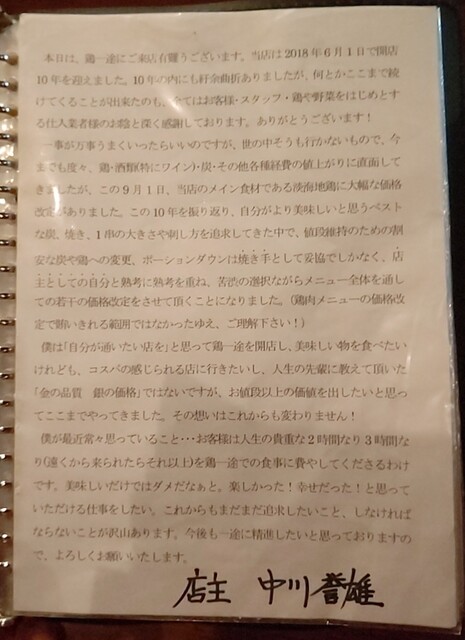 本日は、鶏一途にご来店有難うございます。当店は2018年6月1日で開店
10年を迎えました。10年の内にも紆余曲折ありましたが、何とかここまで続
けてくることが出来たのも、全てはお客様・スタッフ・鶏や野菜をはじめとす
る仕入業者様のお陰と深く感謝しております。ありがとうございます！
一事が万事うまくいったらいいのですが、世の中そうも行かないもので、今
までも度々、鶏・酒類(特にワイン)・炭・その他各種経費の値上がりに直面して
きましたが、この9月1日、当店のメイン食材である淡海地鶏に大幅な価格
改定がありました。この10年を振り返り、自分がより美味しいと思うベスト
な炭、焼き、1串の大きさや刺し方を追求してきた中で、値段維持のための割
安な炭や鶏への変更、ポーションダウンは焼き手として妥協でしかなく、店
主としての自分と熟考に熟考を重ね、苦渋の選択ながらメニュー全体を通し
ての若干の価格改定をさせて頂くことになりました。(鶏肉メニューの価格改
定で賄いきれる範囲ではなかったゆえ、ご理解下さい！)
僕は「自分が通いたい店を」と思って鶏一途を開店し、美味しい物を食べたい
けれども、コスパの感じられる店に行きたいし、人生の先輩に教えて頂いた
「金の品質　銀の価格」ではないですが、お値段以上の価値を出したいと思っ
てここまでやってきました。その想いはこれからも変わりません！
僕が最近常々思っていること･･･お客様は人生の貴重な2時間なり3時間な
り(遠くから来られたらそれ以上)を鶏一途での食事に費やしてくださるわけ
です。美味しいだけではダメだなぁと。楽しかった！幸せだった！と思って
いただける仕事をしたい。これからもまだまだ追求したいこと、しなければ
ならないことが沢山あります。今後も一途に精進したいと思っておりますの
で、よろしくお願いいたします。
店主　中川誉雄